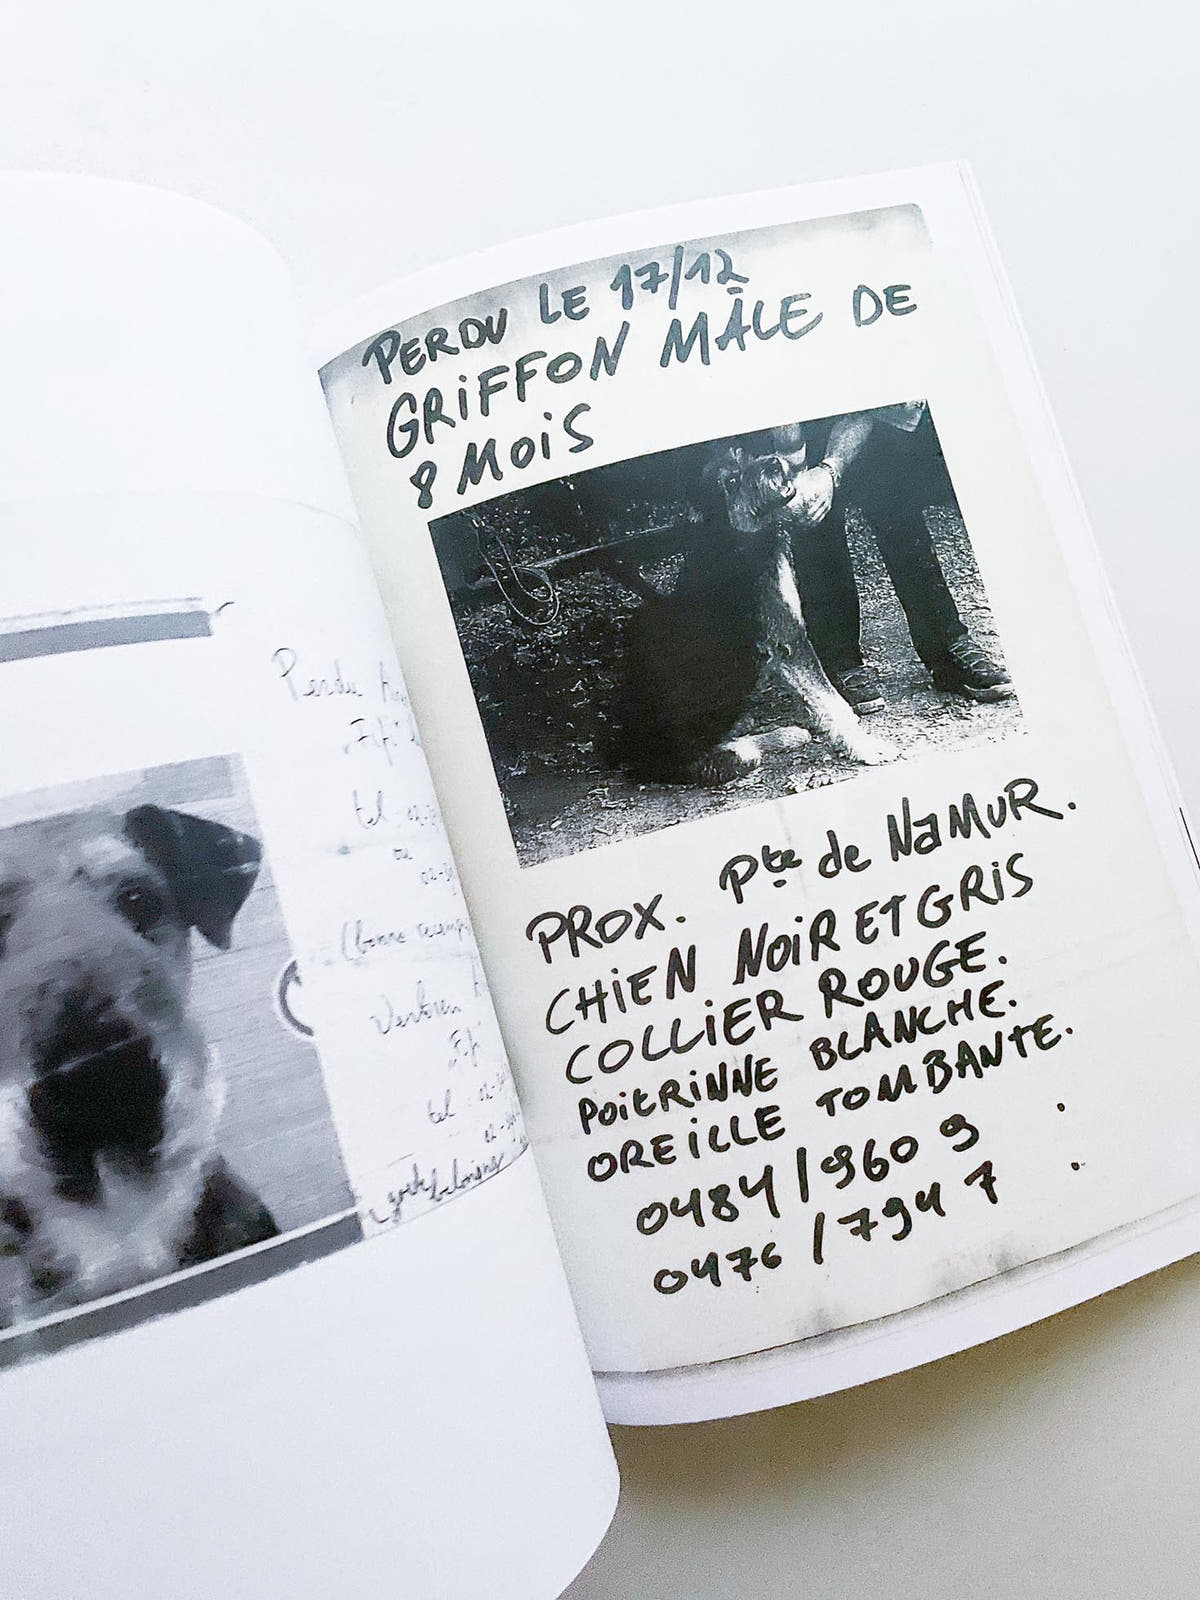 Perdu
"Fifi"
tel. 02-
ou
02-
(bonne
Verloren
"Fifi"
tel : 02-
02-
PERDU LE 17/12
GRIFFON MÂLE DE
8 MOIS
PROX. Pte de NAMUR.
CHIEN NOIR ET GRIS
COLLIER ROUGE.
POITRINNE BLANCHE.
OREILLE TOMBANTE.
0484/960 9
0476/794 7